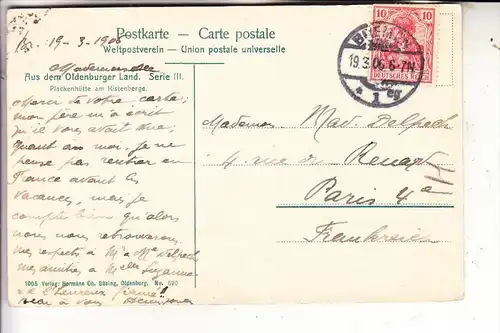 Postkarte – Carte postale
Weltpostverein – Union postale universelle
19-3-1906
Mademoiselle
Aus dem Oldenburger Land. Serie III.
Plackenhütte am Kistenberge.
Merci de votre carte;
mon père m'a écrit
qu'il vous avait vue;
Quant à moi, je ne
pense pas rentrer en
France avant les
vacances, mais je
compte bien qu'alors
nous nous retrouverons.
mes respects à Mr & Mme Delpech
mes amitiés à Melle Suzanne
& à l'heureux fiancé!
bien à vous
1905 Verlag: Hermann Ch. Büsing, Oldenburg. No. 590
BREMEN
19.3.06. 6-7N
* 1 eg
10 10
DEUTSCHES REICH
Mademois. Mad. Delpech
4 rue du Renard
Paris 4e
Frankreich